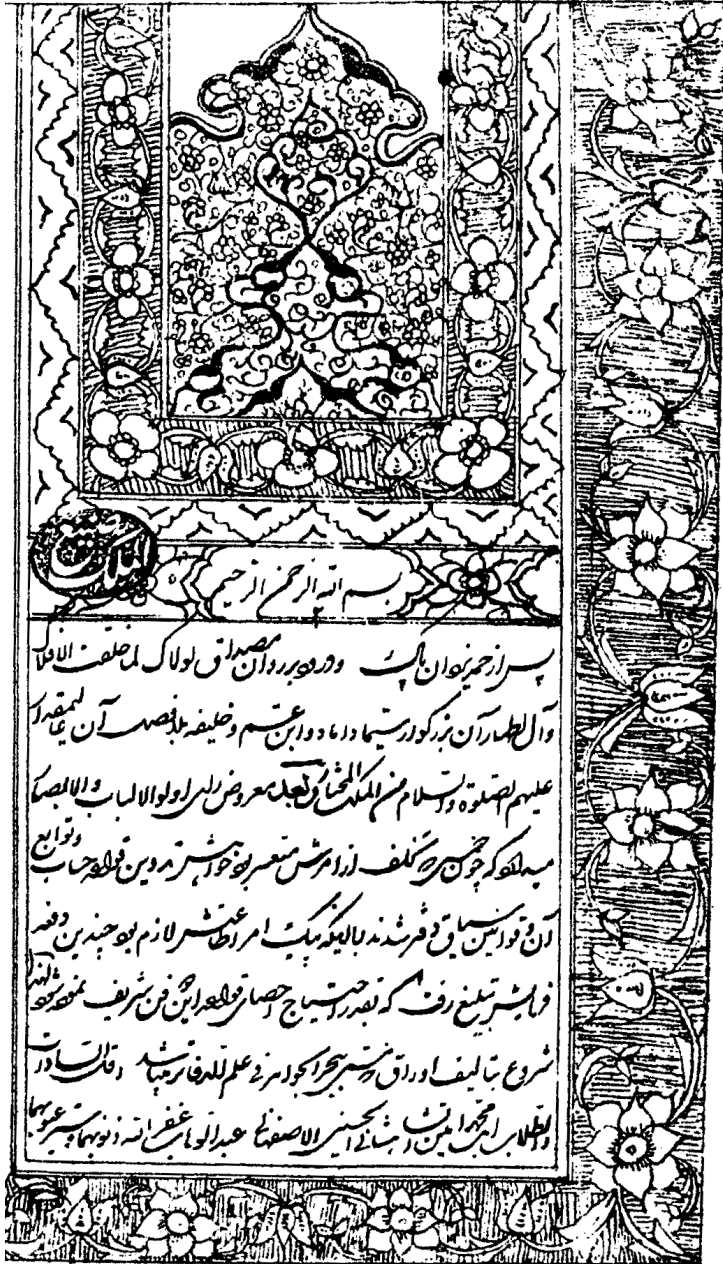 الملك
بسم الله الرحمن الرحیم
پس از حمد یزدان پاک و درود بر روان مصداق لولاک لما خلقت الافلاک
و آل اطهار آن بزرکوار سیما داماد و ابن عم و خلیفه بلافصل آن
علیهم الصلوة والسلام من الملک المختار و بعد معروض رای اولوالالباب و الا
میدارد که چون تخلف از امرش متعسر بود خواهش تدوین قواعد حساب و توابع
آن و قوانین سیاق دفتر شدند با اینکه بیک امر اطاعتش لازم بود چندین دفعه
فرمایش تبلیغ رفت که بقدر احتیاج احصای قواعد این فن شریف نموده شود
شروع بتالیف اوراق ببحر الجواهر فی علم الدفاتر میباشد اقل السادات
والطلاب ابن محمد امین الحسینی الاصفهانی عبدالوهاب غفر الله ذنوبهما و ستر عیوبهما